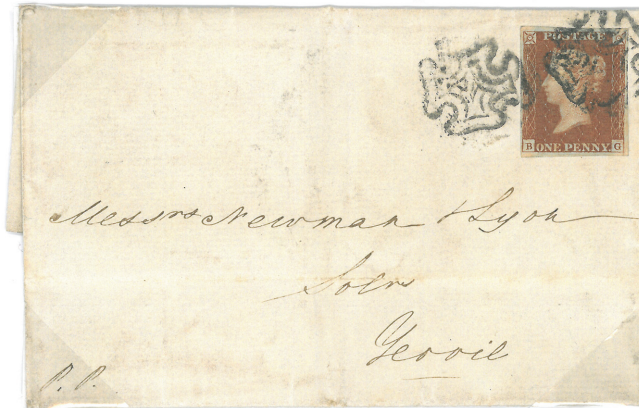 POSTAGE
B ONE PENNY G
Messrs Newman & Lyon
Solrs
Yeovil
P.P.